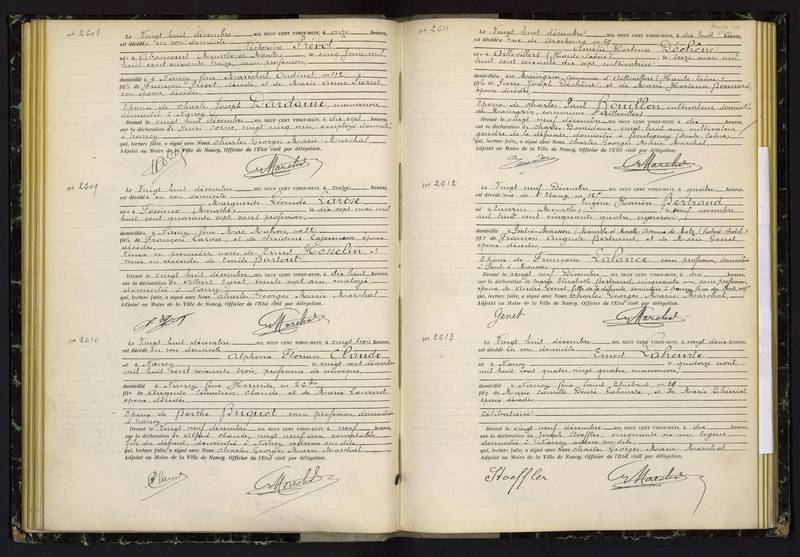 N° 2608
Le Vingt huit décembre MIL NEUF CENT VINGT-HUIT, à onze heures,
est décédée en son domicile Victorine Prévot
née à Abaucourt (Meurthe et Moselle) le cinq juin mil
huit cent soixante treize, sans profession,
domiciliée à Nancy, rue Maréchal Oudinot n° 112
fille de François Prévot décédé, et de Marie Anne Pierret,
son épouse décédée
Epouse de Charles Joseph Dardaine, manœuvre
domicilié à Nancy
Dressé le vingt huit décembre MIL NEUF CENT VINGT-HUIT, à dix sept heures,
sur la déclaration de Henri Corne, vingt cinq ans, employé, domicilié
à Nancy
qui, lecture faite, a signé avec Nous Charles Georges Marie Maréchal,
Adjoint au Maire de la Ville de Nancy, Officier de l'Etat civil par délégation.
N° 2609
Le Vingt huit décembre MIL NEUF CENT VINGT-HUIT, à heures,
est décédée en son domicile
Marguerite Léonide Larose
née à (Meurthe) le dix sept mai mil
huit cent quarante sept sans profession,
domiciliée à Nancy, rue Mac Mahon, n°
fille de François Larose, et de Christine époux
décédés
Veuve en première noces de Ernest Hesselin et
veuve en secondes de Emile Bartout
Dressé le vingt huit décembre MIL NEUF CENT VINGT-HUIT, à dix huit heures,
sur la déclaration de Albert trente sept ans, employé,
domicilié à Nancy
qui, lecture faite, a signé avec Nous Charles Georges Marie Maréchal
Adjoint au Maire de la Ville de Nancy, Officier de l'Etat civil par délégation.
N° 2610
Le Vingt huit décembre MIL NEUF CENT VINGT-HUIT, à vingt trois heures,
est décédé en son domicile Alphonse Florian Claude
né à Nancy le vingt sept décembre
mil huit cent soixante trois, professeur de musique,
domicilié à Nancy, rue Hermite, n°
fils de Auguste Sébastien Claude et de Marie Laurent
époux décédés
Epoux de Berthe sans profession, domiciliée
à Nancy
Dressé le Vingt neuf décembre MIL NEUF CENT VINGT-HUIT, à neuf heures,
sur la déclaration de Alfred Claude, vingt neuf ans, comptable
fils du défunt, domicilié à Nancy, adresse sus dite,
qui, lecture faite, a signé avec Nous Charles Georges Marie Maréchal
Adjoint au Maire de la Ville de Nancy, Officier de l'Etat civil par délégation.
Claude
N° 2611
Le Vingt huit décembre MIL NEUF CENT VINGT-HUIT, à dix huit heures,
est décédée rue de Strasbourg n° Amélie Hortense Déchêne
née à Aillevillers (Haute Saône) le seize mai mil
huit cent soixante dix sept, cultivatrice
domiciliée au commune d'Aillevillers (Haute Saône)
fille de Pierre Joseph Déchêne et de Marie Hortense
époux décédés
Epouse de Charles Paul Rouillon, cultivateur, domicilié
commune d'Aillevillers
Dressé le vingt neuf décembre MIL NEUF CENT VINGT-HUIT, à dix heures,
sur la déclaration de Charles vingt huit ans, cultivateur,
gendre de la défunte, domicilié à (Haute Saône)
qui, lecture faite, a signé avec Nous Charles Georges Marie Maréchal,
Adjoint au Maire de la Ville de Nancy, Officier de l'Etat civil par délégation.
N° 2612
Le Vingt neuf Décembre MIL NEUF CENT VINGT-HUIT, à quatre heures,
est décédé rue de Eugène Honoré Bertrand
né à (Meurthe) le neuf novembre
mil huit cent cinquante quatre,
domicilié à Pont à Mousson (Meurthe et Moselle)
fils de François Auguste Bertrand, et de Marie Genet,
époux décédés
Epoux de Françoise Lalance sans profession, domiciliée
à Pont à Mousson
Dressé le vingt neuf Décembre MIL NEUF CENT VINGT-HUIT, à dix heures,
sur la déclaration de Marie Elisabeth Bertrand, cinquante un ans, sans profession,
épouse de André Genet, fille de la défunte, domiciliée à Nancy
qui, lecture faite, a signé avec Nous Charles Georges Marie Maréchal,
Adjoint au Maire de la Ville de Nancy, Officier de l'Etat civil par délégation.
Genet
N° 2613
Le Vingt huit décembre MIL NEUF CENT VINGT-HUIT, à vingt deux heures,
est décédé en son domicile Ernest Laheurte
né à Nancy le quatorze avril
mil huit cent quatre vingt quatre, manœuvre,
domicilié à Nancy, rue Saint Thiébaut n° 29
fils de Marie Camille Désiré Laheurte, et de Marie Thiériot
époux décédés
Célibataire
Dressé le vingt neuf décembre MIL NEUF CENT VINGT-HUIT, à dix heures,
sur la déclaration de Joseph Stoeffler, cinquante six ans, logeur
domicilié à Nancy, adresse sus dite,
qui, lecture faite, a signé avec Nous Charles Georges Marie Maréchal
Adjoint au Maire de la Ville de Nancy, Officier de l'Etat civil par délégation.
Stoeffler